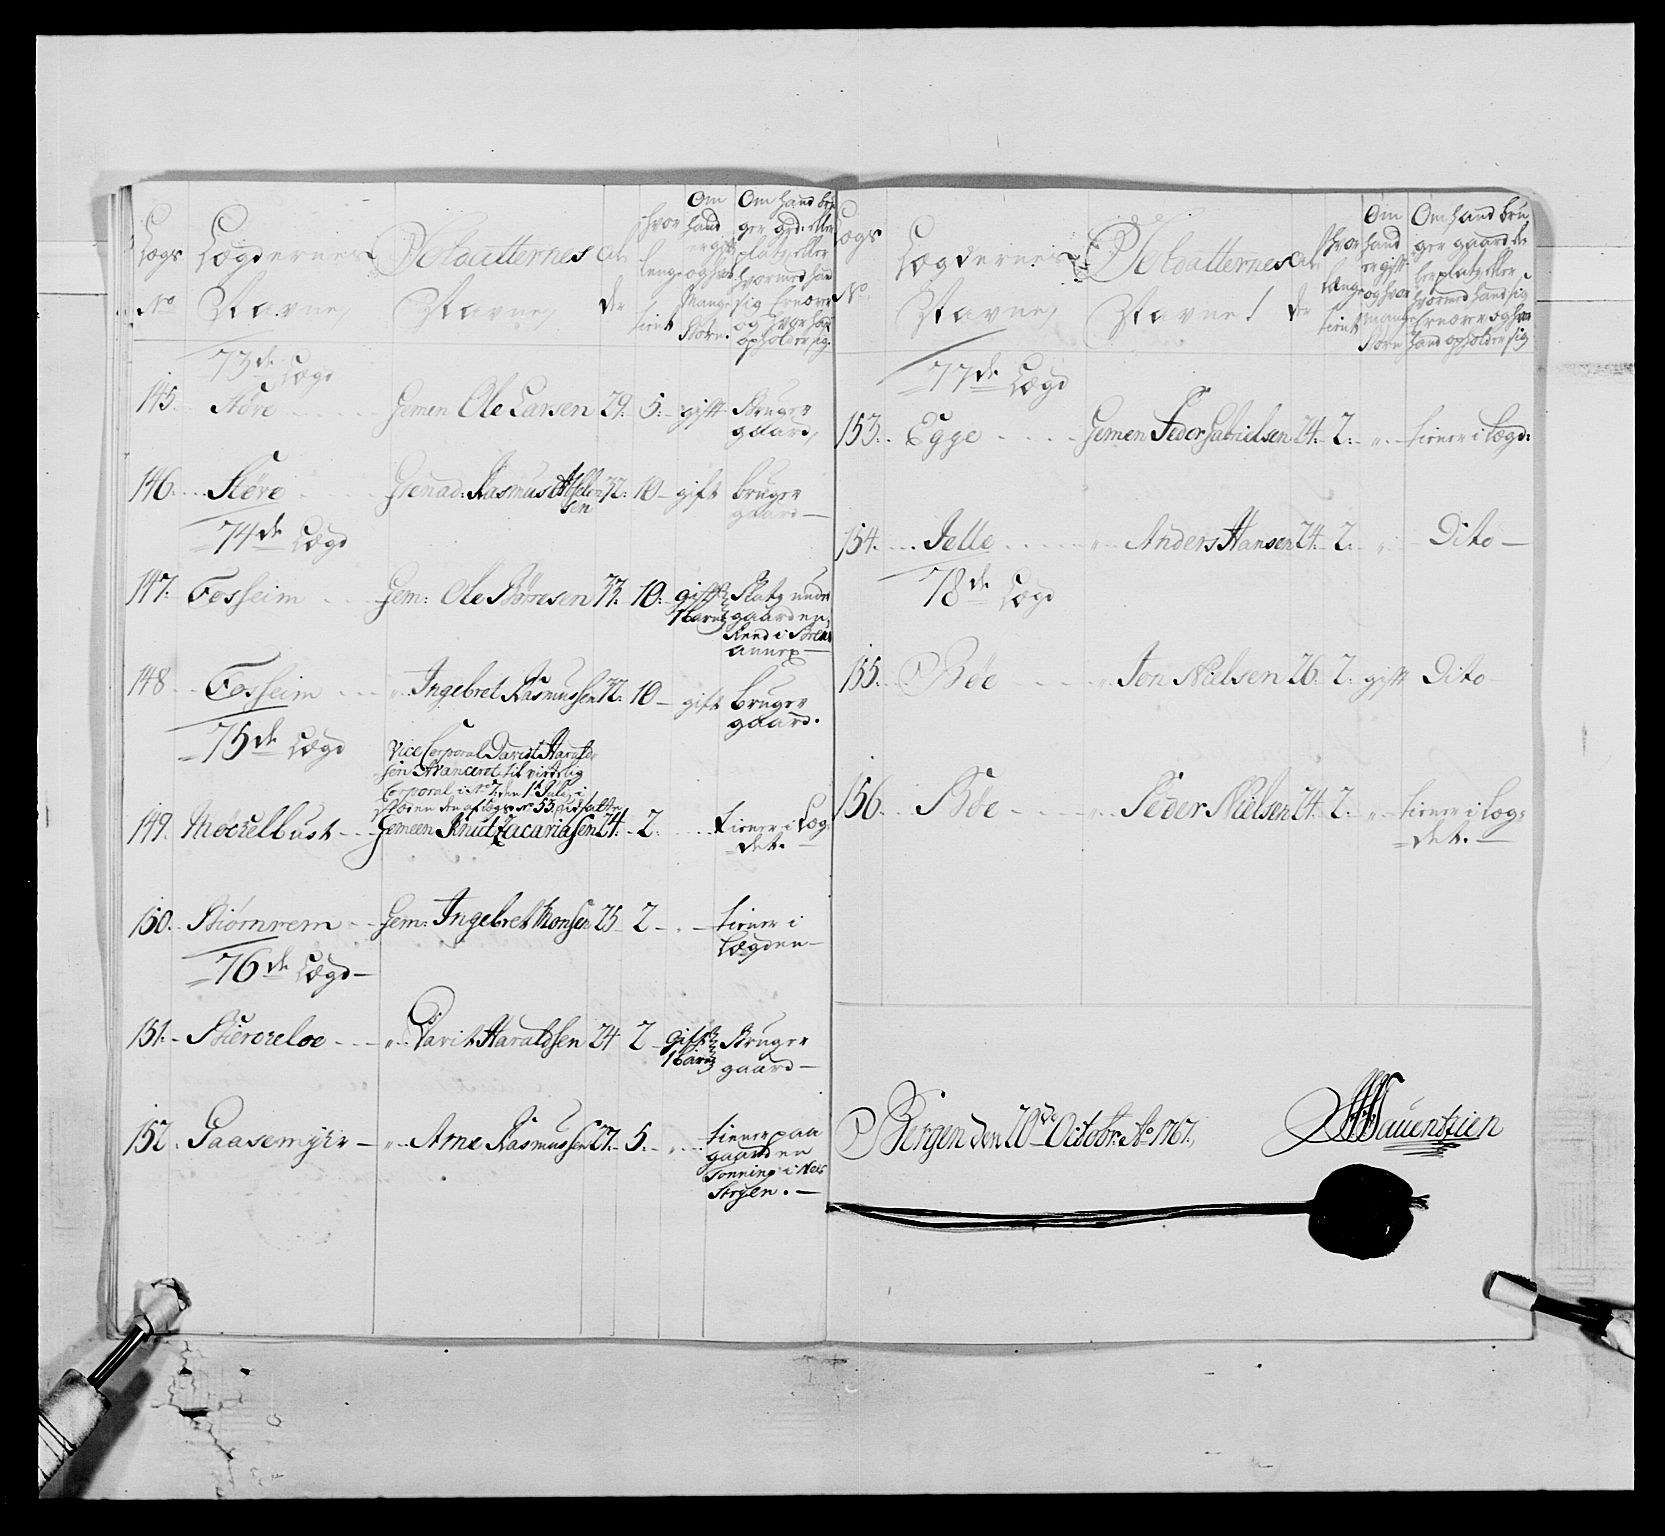 Lægs No
Lægdernes Navne,
Soldatternes Navne,
Al der
hvor lenge tient
Om hand er gift og hvor Mange Børn.
Om hand bruger grd: eller platz eller hvormed hand sig Ernærer og hvor hand opholder sig.
73de Lægd
145. Støre - Gemen Ole Larsen 29. 5. gift Bruger gaard,
146. Støre - Grenad: Rasmus Abselonsen 32. 10 - gift bruger gaard -
74de Lægd
147. Fosheim - Gem: Ole Børresen 33. 10. gift 1 barn Platz under gaarden Reed i Breums annex -
148 Fosheim - " Ingebret Rasmussen 32. 10 - gift bruger gaard.
75de Lægd
Vice Corporal Davidt Haraldsen Avanceret til virkelig Corporal i No 7. den 1te Julii, i
149. Møckelbust - Gemeen Knut Zacariassen 24. 2. tiener i Lægdet.
150. Biørnrem - Gem: Ingebret Monsen 25 2 - tiener i Lægden -
76de Lægd -
151. Bierckeloe - " Davit Haraldsen 24 2 gift 1 barn Bruger gaard -
152. Gaasemyhr - " Arne Rasmussen 27. 5. - tiener paa gaarden Tonning i Nordstryen. -
Lægs No.
Lægdernes Navne,
Soldatternes Navne/
Al der
hvor længe tient
Om hand er gift og hvor mange Børn
Om hand bruger gaard eller platz eller hvormed hand sig Ernærer og hvor hand opholder sig
77de Lægd
153. Egge - Gemen Peder Gabrielsen 24. 2. " tiener i Lægd:
154. Jelle - " Anders Hansen 24. 2. " Dito -
78de Lægd
155. Bøe - " Jon Nielsen 26. 2. gift Dito
156. Bøe - " Peder Nielsen 24. 2. " tiener i Lægdet. -
Bergen den 20de Octobr: Ao 1767.